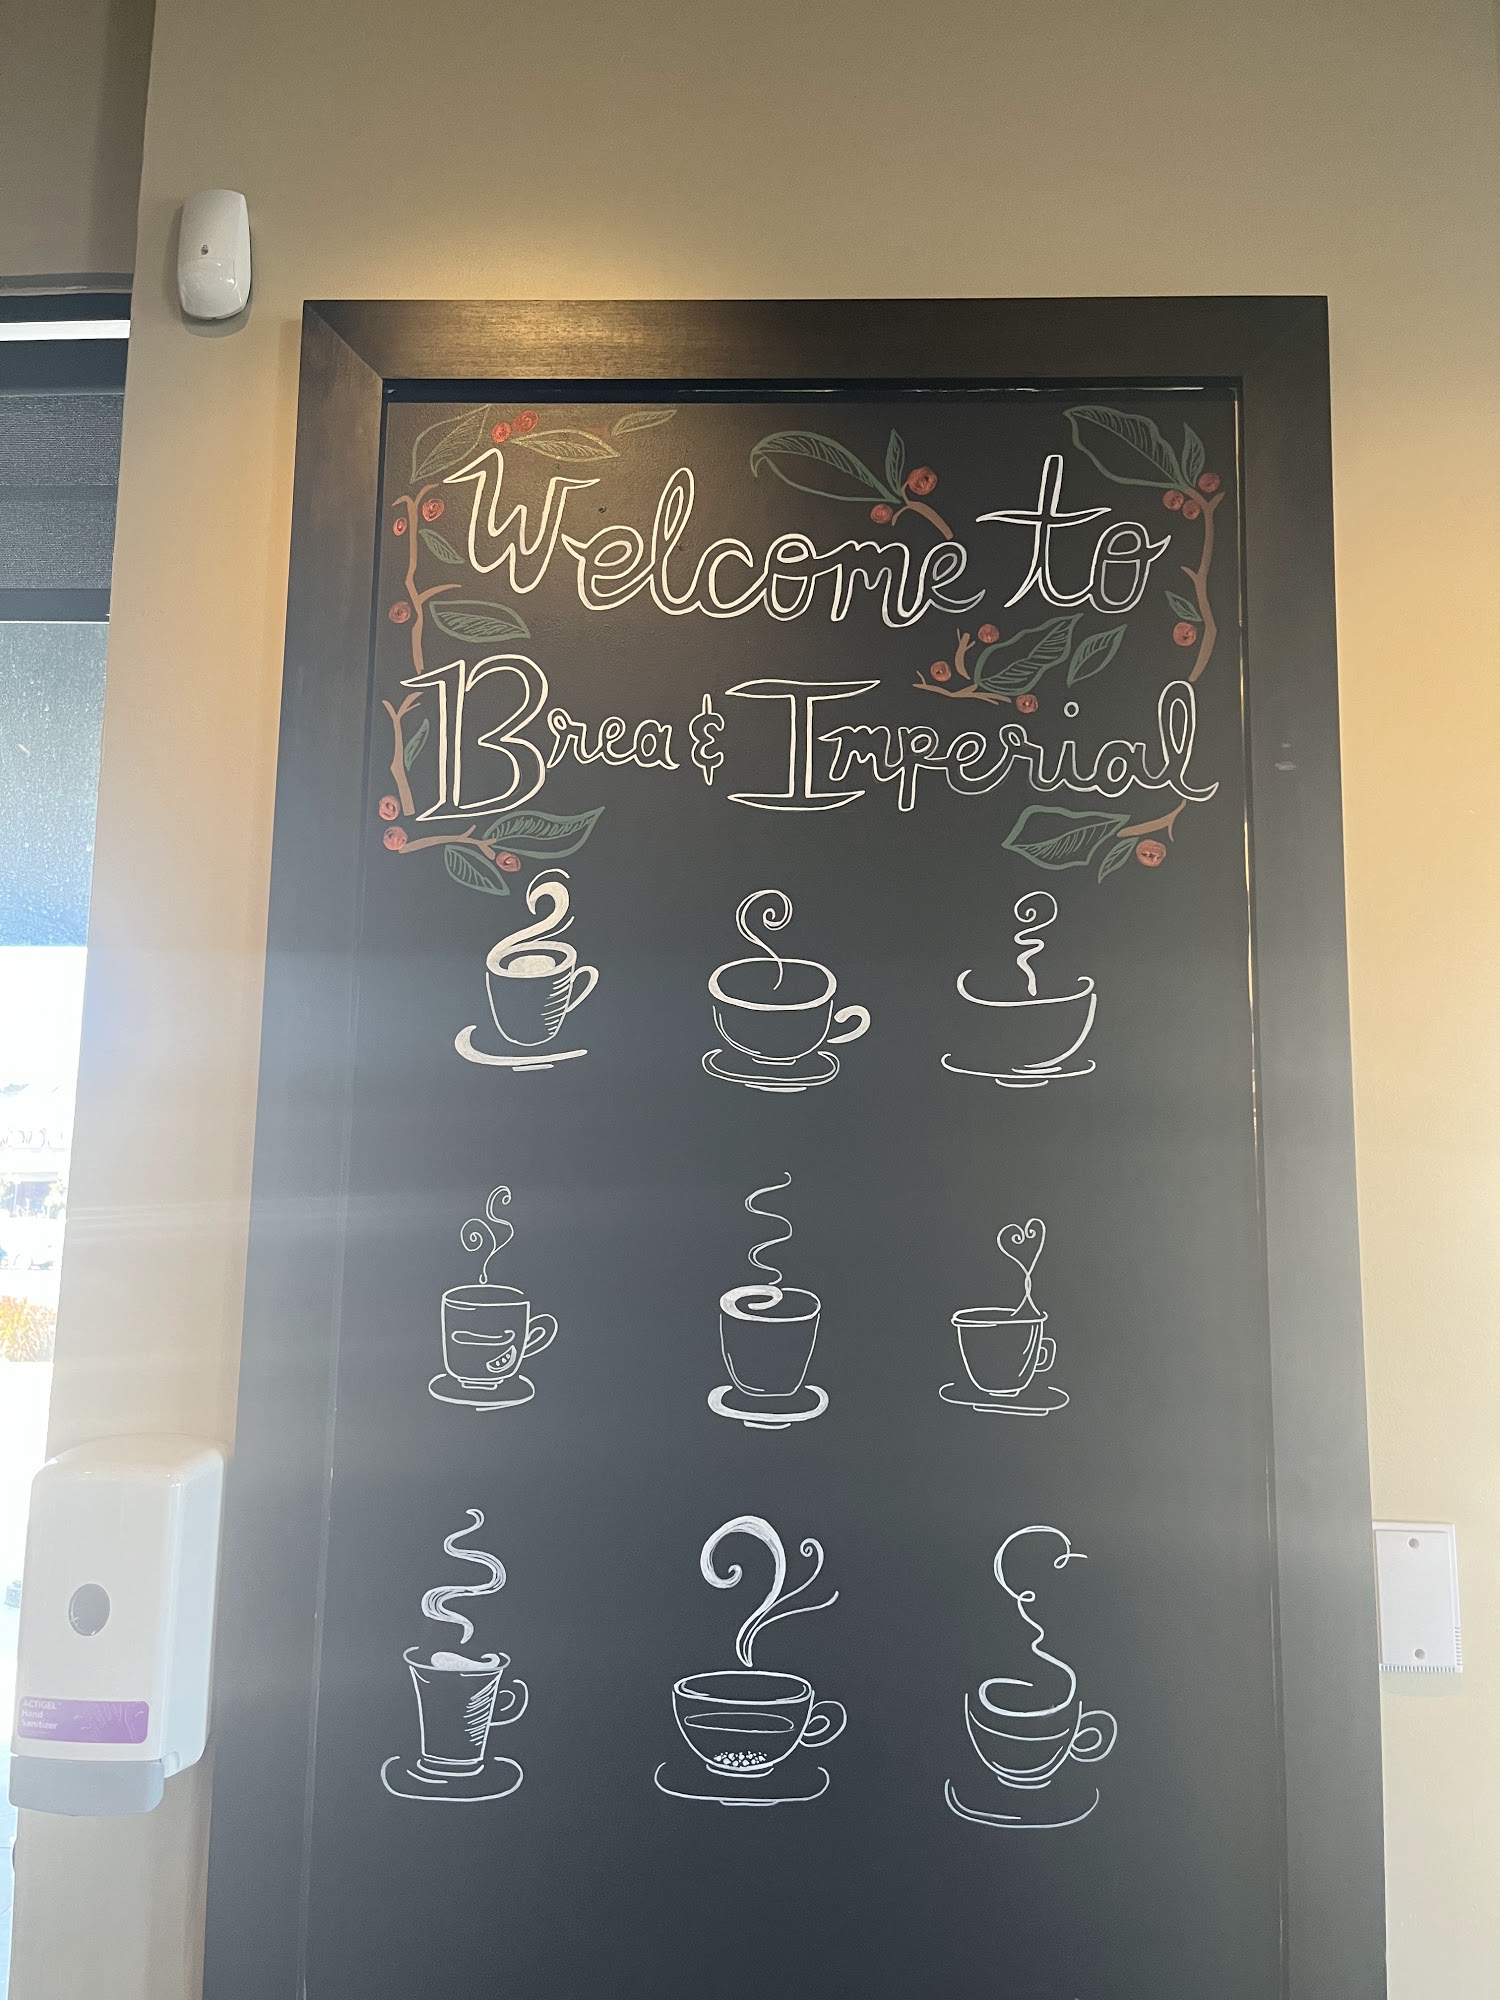 Welcome to
Brea & Imperial
ACTIGEL
Hand
Sanitizer